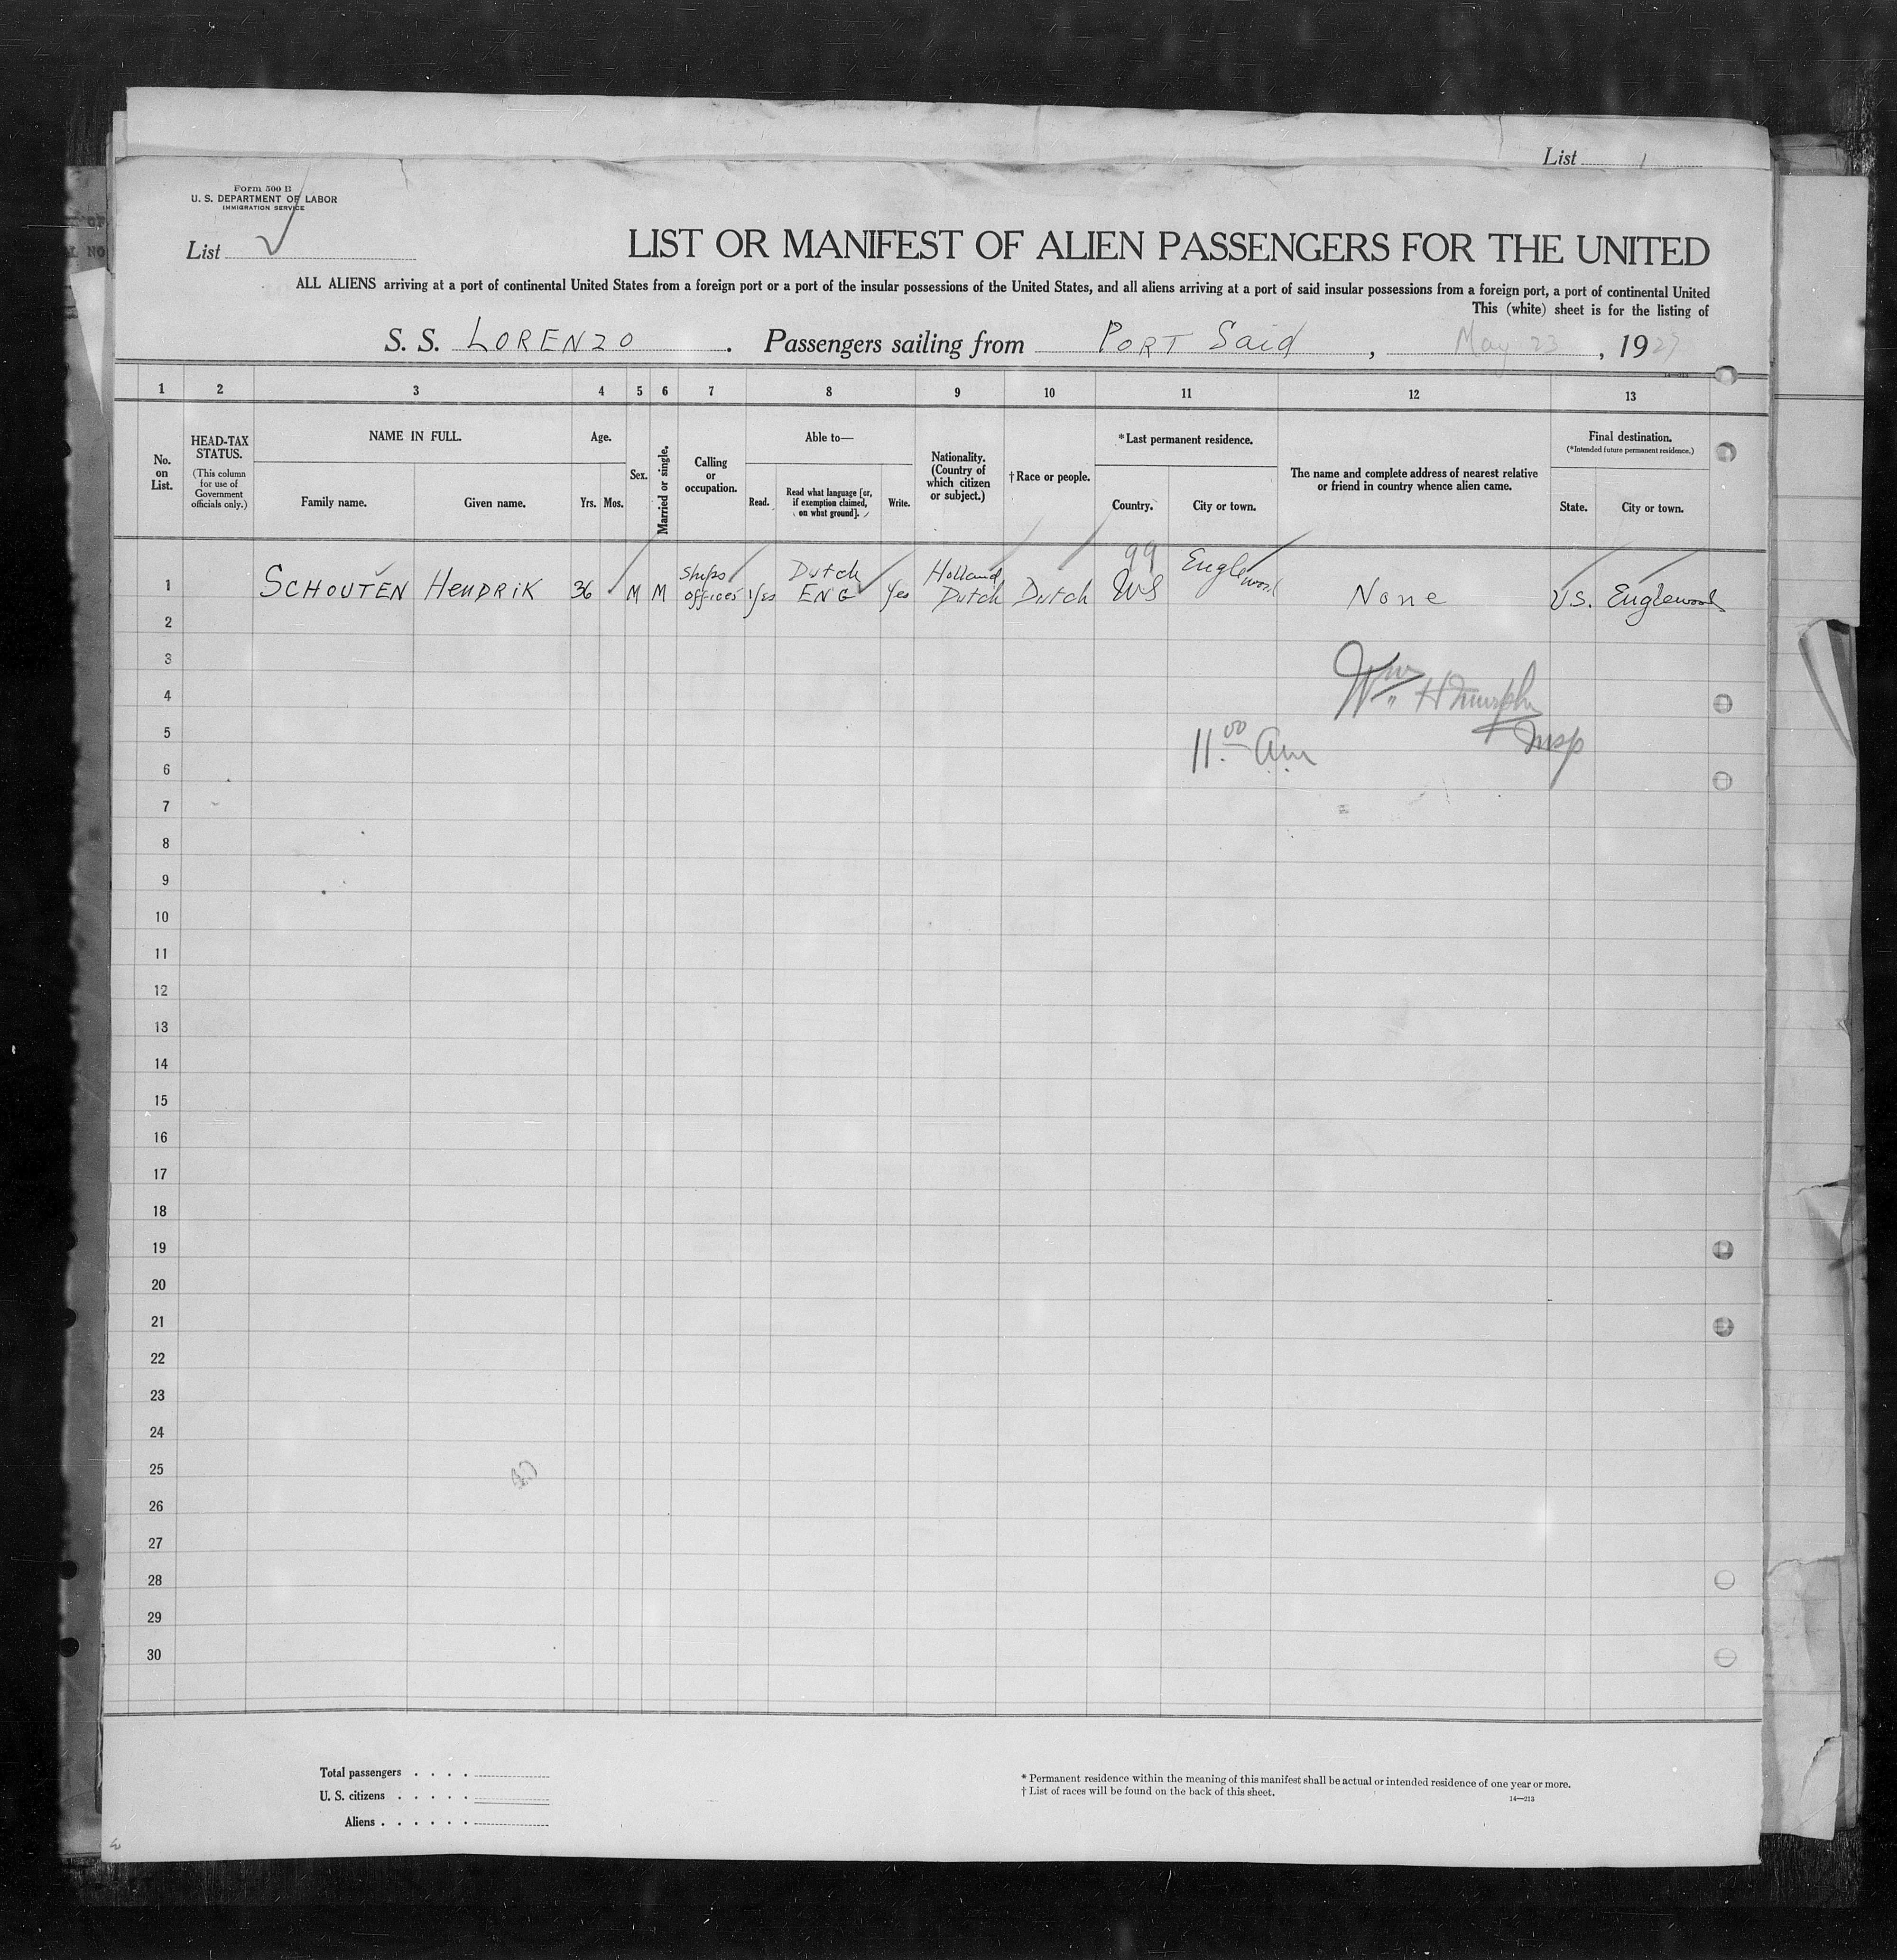 List 1
Form 500 B
U. S. DEPARTMENT OF LABOR
IMMIGRATION SERVICE
List
LIST OR MANIFEST OF ALIEN PASSENGERS FOR THE UNITED
ALL ALIENS arriving at a port of continental United States from a foreign port or a port of the insular possessions of the United States, and all aliens arriving at a port of said insular possessions from a foreign port, a port of continental United
This (white) sheet is for the listing of
S. S. LORENZO. Passengers sailing from PORT Said, May 23, 1929
14—213
1 2 3 4 5 6 7 8 9 10 11 12 13
No. on List.
HEAD-TAX STATUS.
(This column for use of Government officials only.)
NAME IN FULL.
Family name. Given name.
Age.
Yrs. Mos.
Sex.
Married or single.
Calling or occupation.
Able to—
Read. Read what language [or, if exemption claimed, on what ground]. Write.
Nationality. (Country of which citizen or subject.)
† Race or people.
* Last permanent residence.
Country. City or town.
The name and complete address of nearest relative or friend in country whence alien came.
Final destination.
(* Intended future permanent residence.)
State. City or town.
99
1 SCHOUTEN HENDRIK 36 M M Ships officer Yes Dutch ENG Yes Holland Dutch Dutch US Englewood None U.S. Englewood
2
3
Wm H Murphy
4
5
Insp
11.00 am
6
7
8
9
10
11
12
13
14
15
16
17
18
19
20
21
22
23
24
25
26
27
28
29
30
Total passengers . . . .
U. S. citizens . . . . .
Aliens . . . . . .
* Permanent residence within the meaning of this manifest shall be actual or intended residence of one year or more.
† List of races will be found on the back of this sheet.
14—213